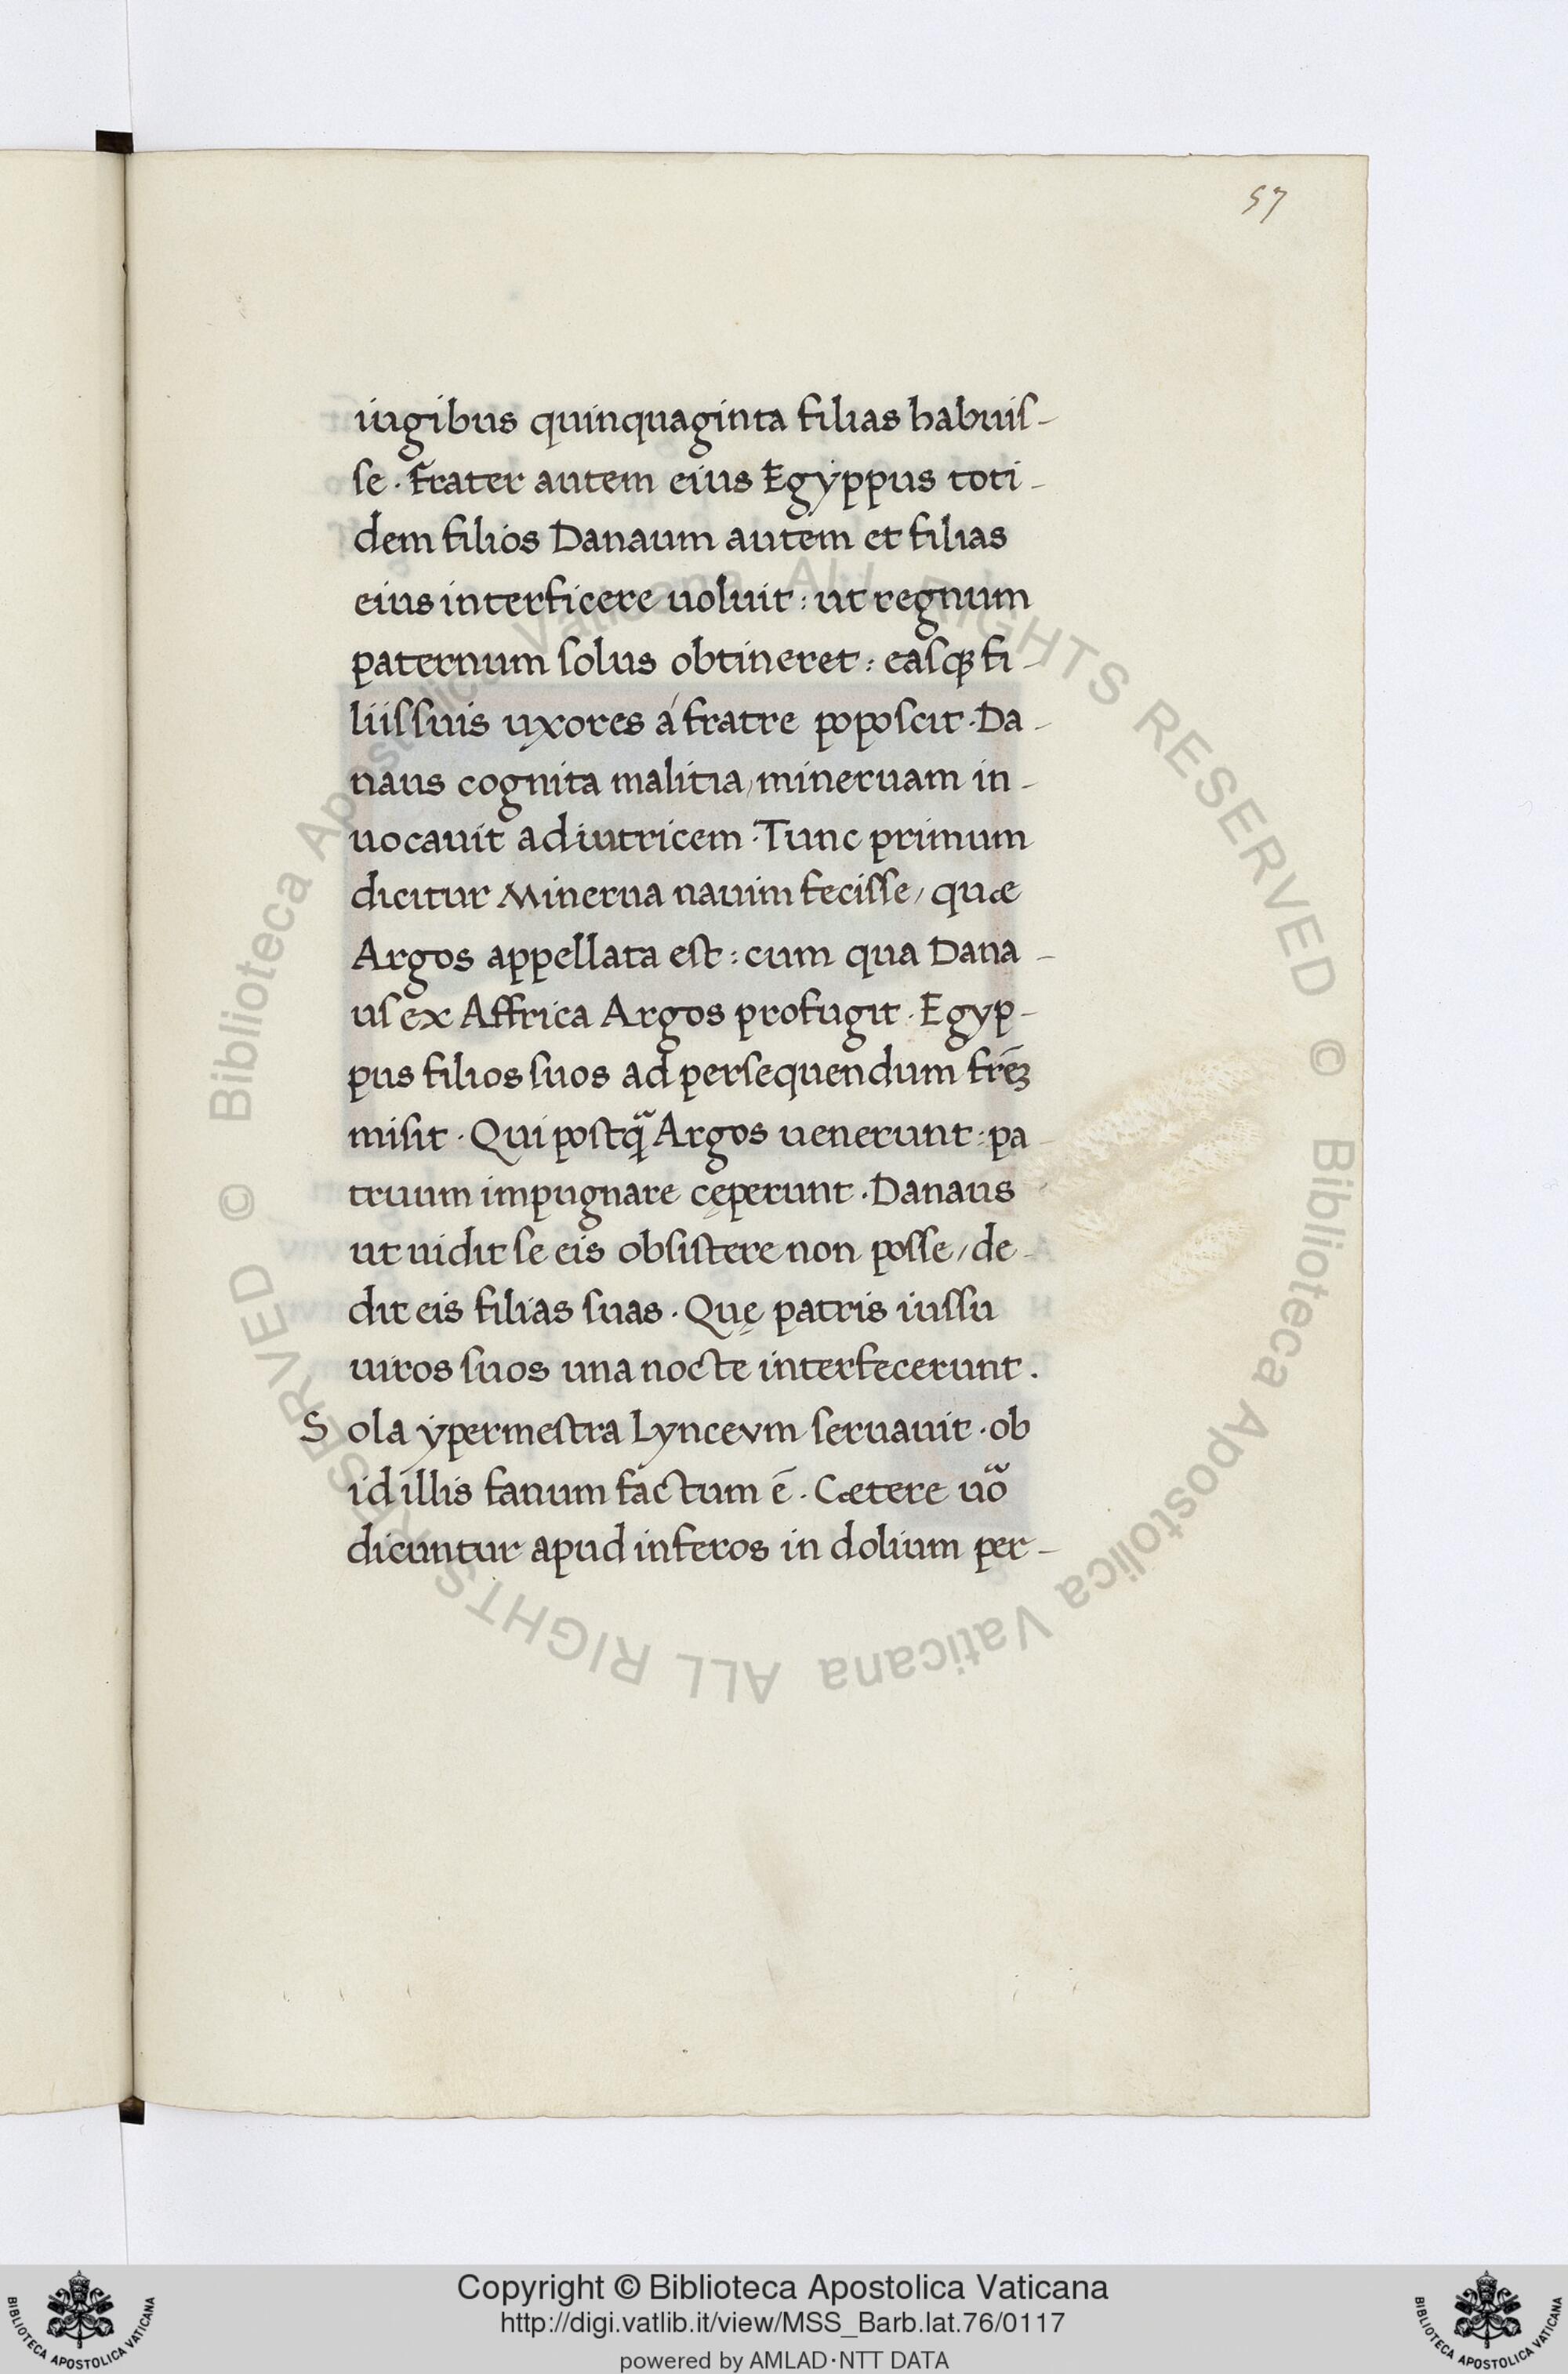 57
iugibus quinquaginta filias habuiſ-
ſe · Frater autem eius Egẏppus toti-
dem filios Danaum autem et filias
eius interficere uoluit : ut regnum
paternum ſolus obtineret : eaſqꝫ fi-
liiſ ſuis uxores á fratre popoſcit · Da-
naus cognita malitia, mineruam in-
uocauit adiutricem · Tunc primum
dicitur Minerua nauim feciſſe / quæ
Argos appellata eſt : cum qua Dana-
uſ ex Affrica Argos profugit · Egyp-
pus filios ſuos ad perſequendum fr̄eꝫ
miſit · Qui poſtqᷓ Argos uenerunt : pa-
truum impugnare cęperunt · Danaus
ut uidit ſe eis obſiſtere non poſſe / de-
dit eis filias ſuas · Quę patris iuſſu
uiros ſuos una nocte interfecerunt .
Sola ẏpermeſtra Lyncevm ſeruauit · ob
id illis fanum factum ē · Cætere uoᷓ
dicuntur apud inferos in dolium per-
© Biblioteca Apostolica Vaticana ALL RIGHTS RESERVED © Biblioteca Apostolica Vaticana ALL RIGHTS RESERVED
Copyright © Biblioteca Apostolica Vaticana
http://digi.vatlib.it/view/MSS_Barb.lat.76/0117
powered by AMLAD·NTT DATA
BIBLIOTECA APOSTOLICA VATICANA
BIBLIOTECA APOSTOLICA VATICANA